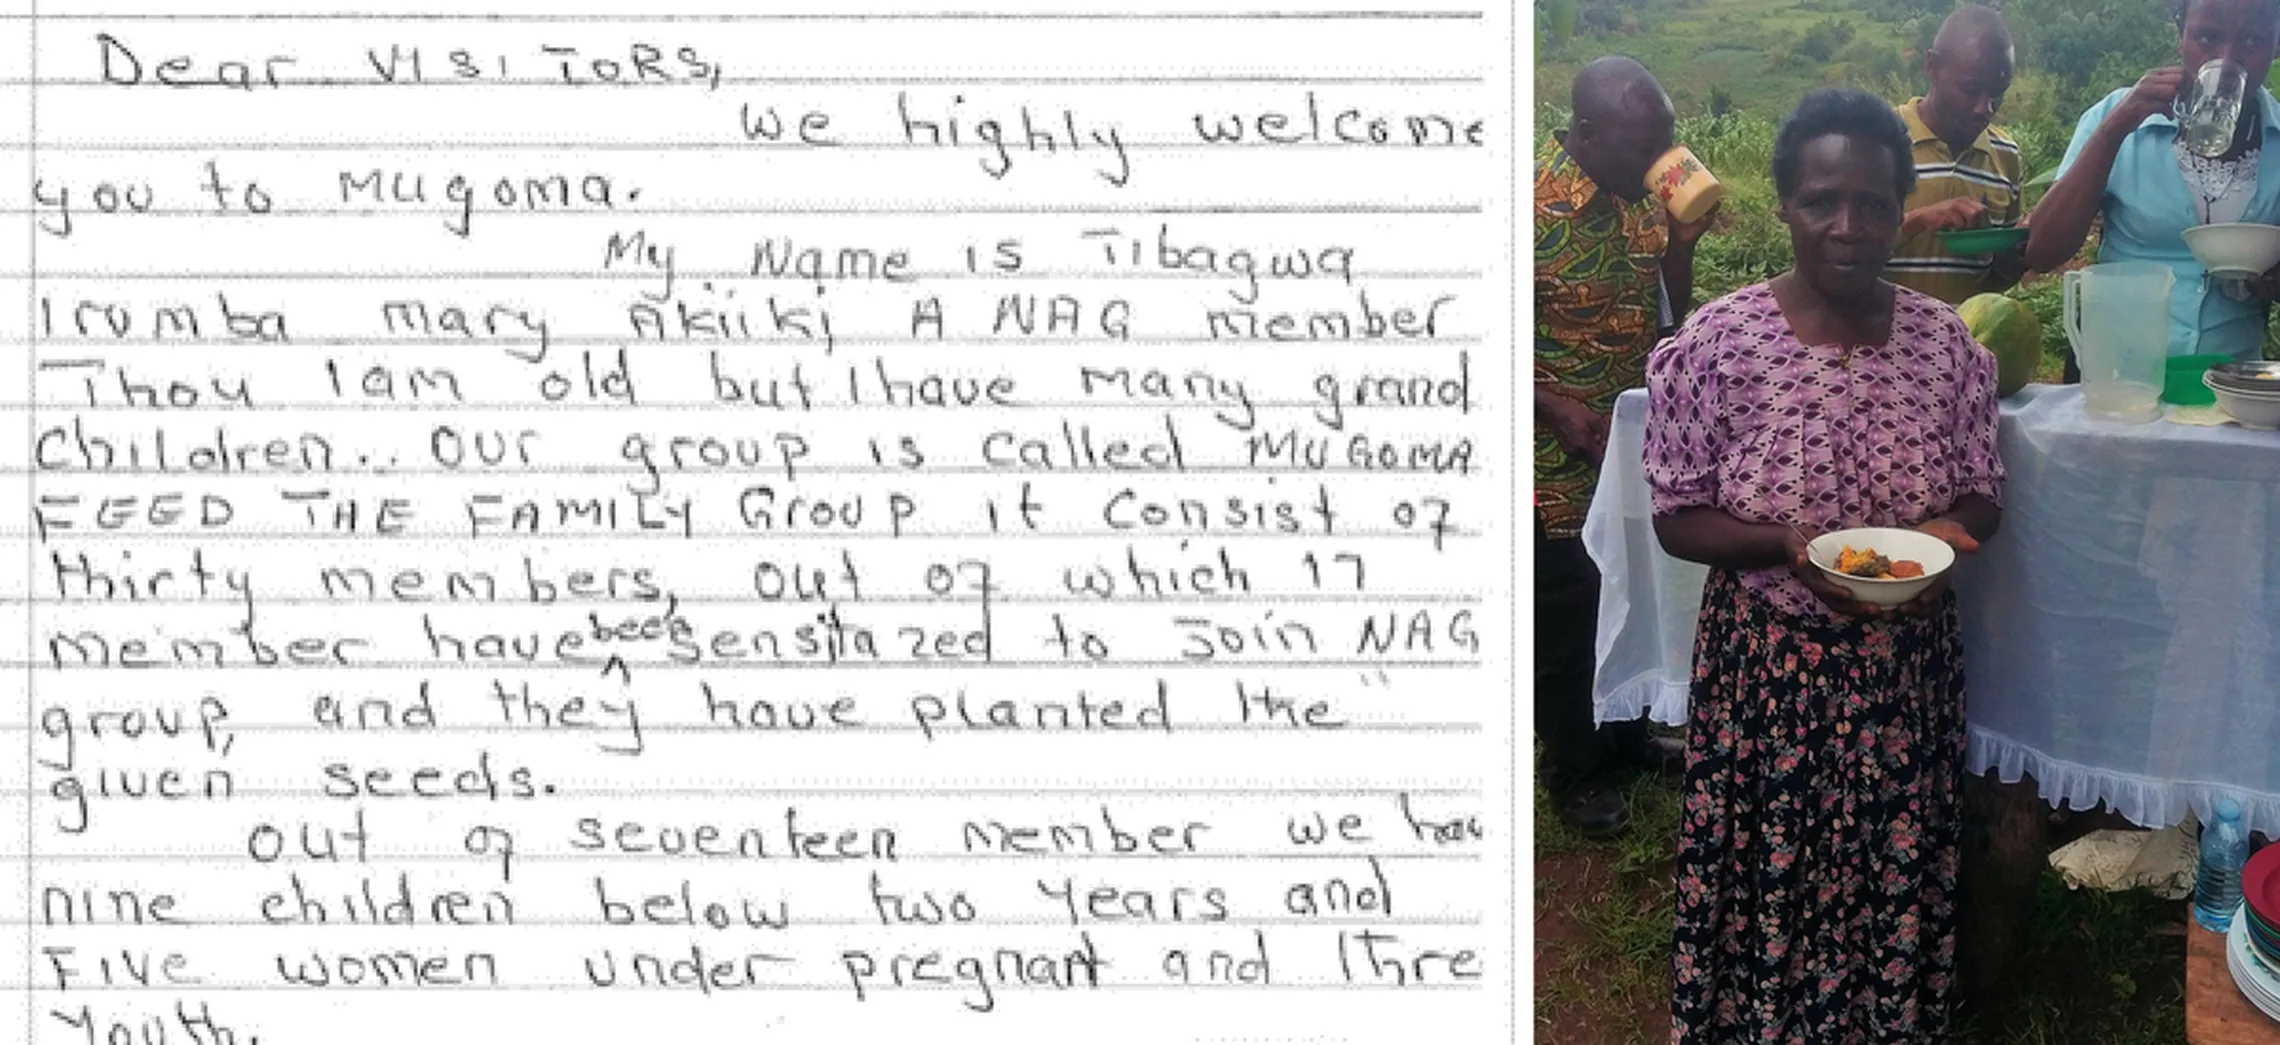 Dear VISITORS,
we highly welcome
you to Mugoma.
My Name is Tibagwa
Irumba mary Akiiki A NAG member
Thou I am old but I have many grand
children.. our group is called MUGOMA
FEED THE FAMILY Group it consist of
thirty members, out of which 17
member have been sensitazed to Join NAG
group, and they have planted the "
given seeds.
out of seventeen member we hav
nine children below two years and
Five women under pregnant and thre
Youth.